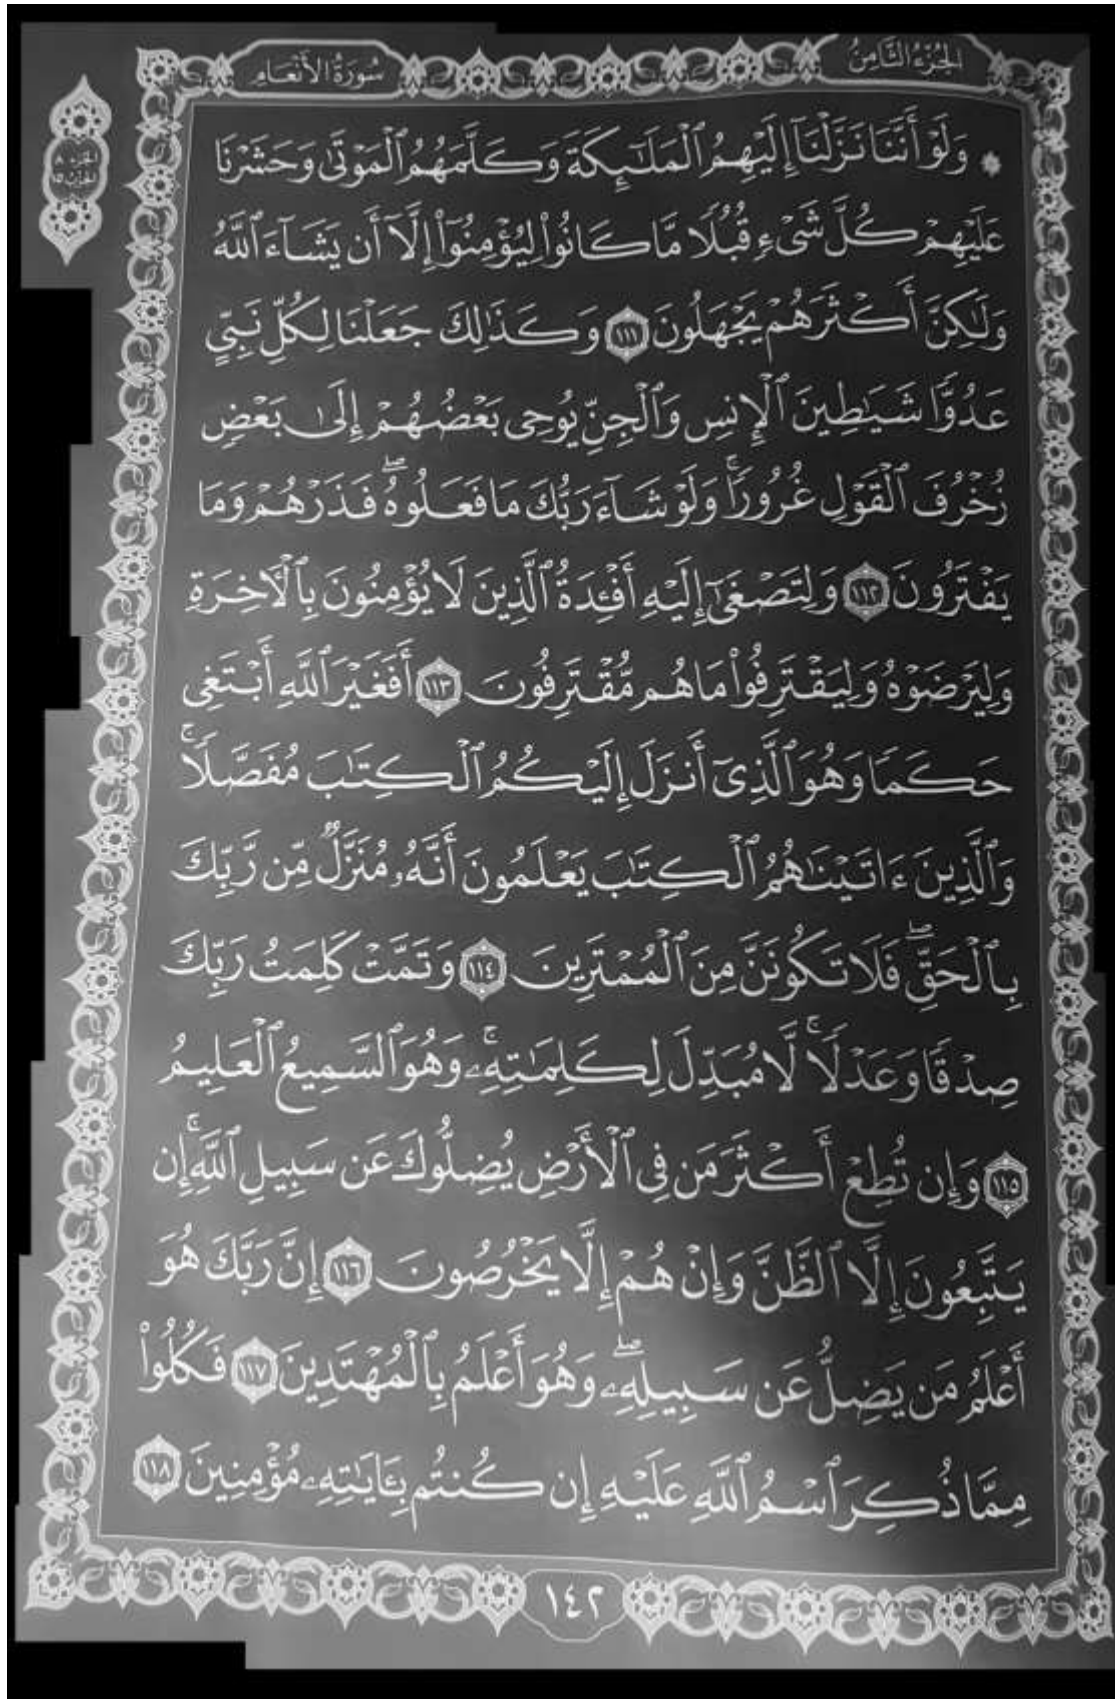 الجُزْءُ الثَّامِنُ
سُورَةُ الأَنْعَامِ
الجزء ٨
الحزب ١٥
۞ وَلَوْ أَنَّنَا نَزَّلْنَآ إِلَيْهِمُ ٱلْمَلَـٰٓئِكَةَ وَكَلَّمَهُمُ ٱلْمَوْتَىٰ وَحَشَرْنَا
عَلَيْهِمْ كُلَّ شَىْءٍ قُبُلًا مَّا كَانُوا۟ لِيُؤْمِنُوٓا۟ إِلَّآ أَن يَشَآءَ ٱللَّهُ
وَلَـٰكِنَّ أَكْثَرَهُمْ يَجْهَلُونَ ١١١ وَكَذَٰلِكَ جَعَلْنَا لِكُلِّ نَبِىٍّ
عَدُوًّا شَيَـٰطِينَ ٱلْإِنسِ وَٱلْجِنِّ يُوحِى بَعْضُهُمْ إِلَىٰ بَعْضٍ
زُخْرُفَ ٱلْقَوْلِ غُرُورًا ۚ وَلَوْ شَآءَ رَبُّكَ مَا فَعَلُوهُ ۖ فَذَرْهُمْ وَمَا
يَفْتَرُونَ ١١٢ وَلِتَصْغَىٰٓ إِلَيْهِ أَفْـِٔدَةُ ٱلَّذِينَ لَا يُؤْمِنُونَ بِٱلْـَٔاخِرَةِ
وَلِيَرْضَوْهُ وَلِيَقْتَرِفُوا۟ مَا هُم مُّقْتَرِفُونَ ١١٣ أَفَغَيْرَ ٱللَّهِ أَبْتَغِى
حَكَمًا وَهُوَ ٱلَّذِىٓ أَنزَلَ إِلَيْكُمُ ٱلْكِتَـٰبَ مُفَصَّلًا ۚ
وَٱلَّذِينَ ءَاتَيْنَـٰهُمُ ٱلْكِتَـٰبَ يَعْلَمُونَ أَنَّهُۥ مُنَزَّلٌ مِّن رَّبِّكَ
بِٱلْحَقِّ ۖ فَلَا تَكُونَنَّ مِنَ ٱلْمُمْتَرِينَ ١١٤ وَتَمَّتْ كَلِمَتُ رَبِّكَ
صِدْقًا وَعَدْلًا ۚ لَّا مُبَدِّلَ لِكَلِمَـٰتِهِۦ ۚ وَهُوَ ٱلسَّمِيعُ ٱلْعَلِيمُ
١١٥ وَإِن تُطِعْ أَكْثَرَ مَن فِى ٱلْأَرْضِ يُضِلُّوكَ عَن سَبِيلِ ٱللَّهِ ۚ إِن
يَتَّبِعُونَ إِلَّا ٱلظَّنَّ وَإِنْ هُمْ إِلَّا يَخْرُصُونَ ١١٦ إِنَّ رَبَّكَ هُوَ
أَعْلَمُ مَن يَضِلُّ عَن سَبِيلِهِۦ ۖ وَهُوَ أَعْلَمُ بِٱلْمُهْتَدِينَ ١١٧ فَكُلُوا۟
مِمَّا ذُكِرَ ٱسْمُ ٱللَّهِ عَلَيْهِ إِن كُنتُم بِـَٔايَـٰتِهِۦ مُؤْمِنِينَ ١١٨
١٤٢